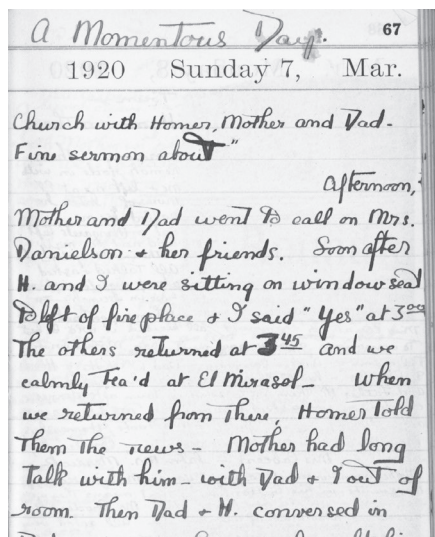 A Momentous Day.
67
1920 Sunday 7, Mar.
Church with Homer, Mother and Dad-
Fine sermon about "
Afternoon,
Mother and Dad went to call on Mrs.
Danielson & her friends. Soon after
H. and I were sitting on window seat
to left of fireplace & I said "Yes" at 3
The others returned at 3 45 and we
calmly tea'd at El Mirasol- when
we returned from there, Homer told
them the news - Mother had long
talk with him - with Dad & I out of
room. Then Dad & H. conversed in